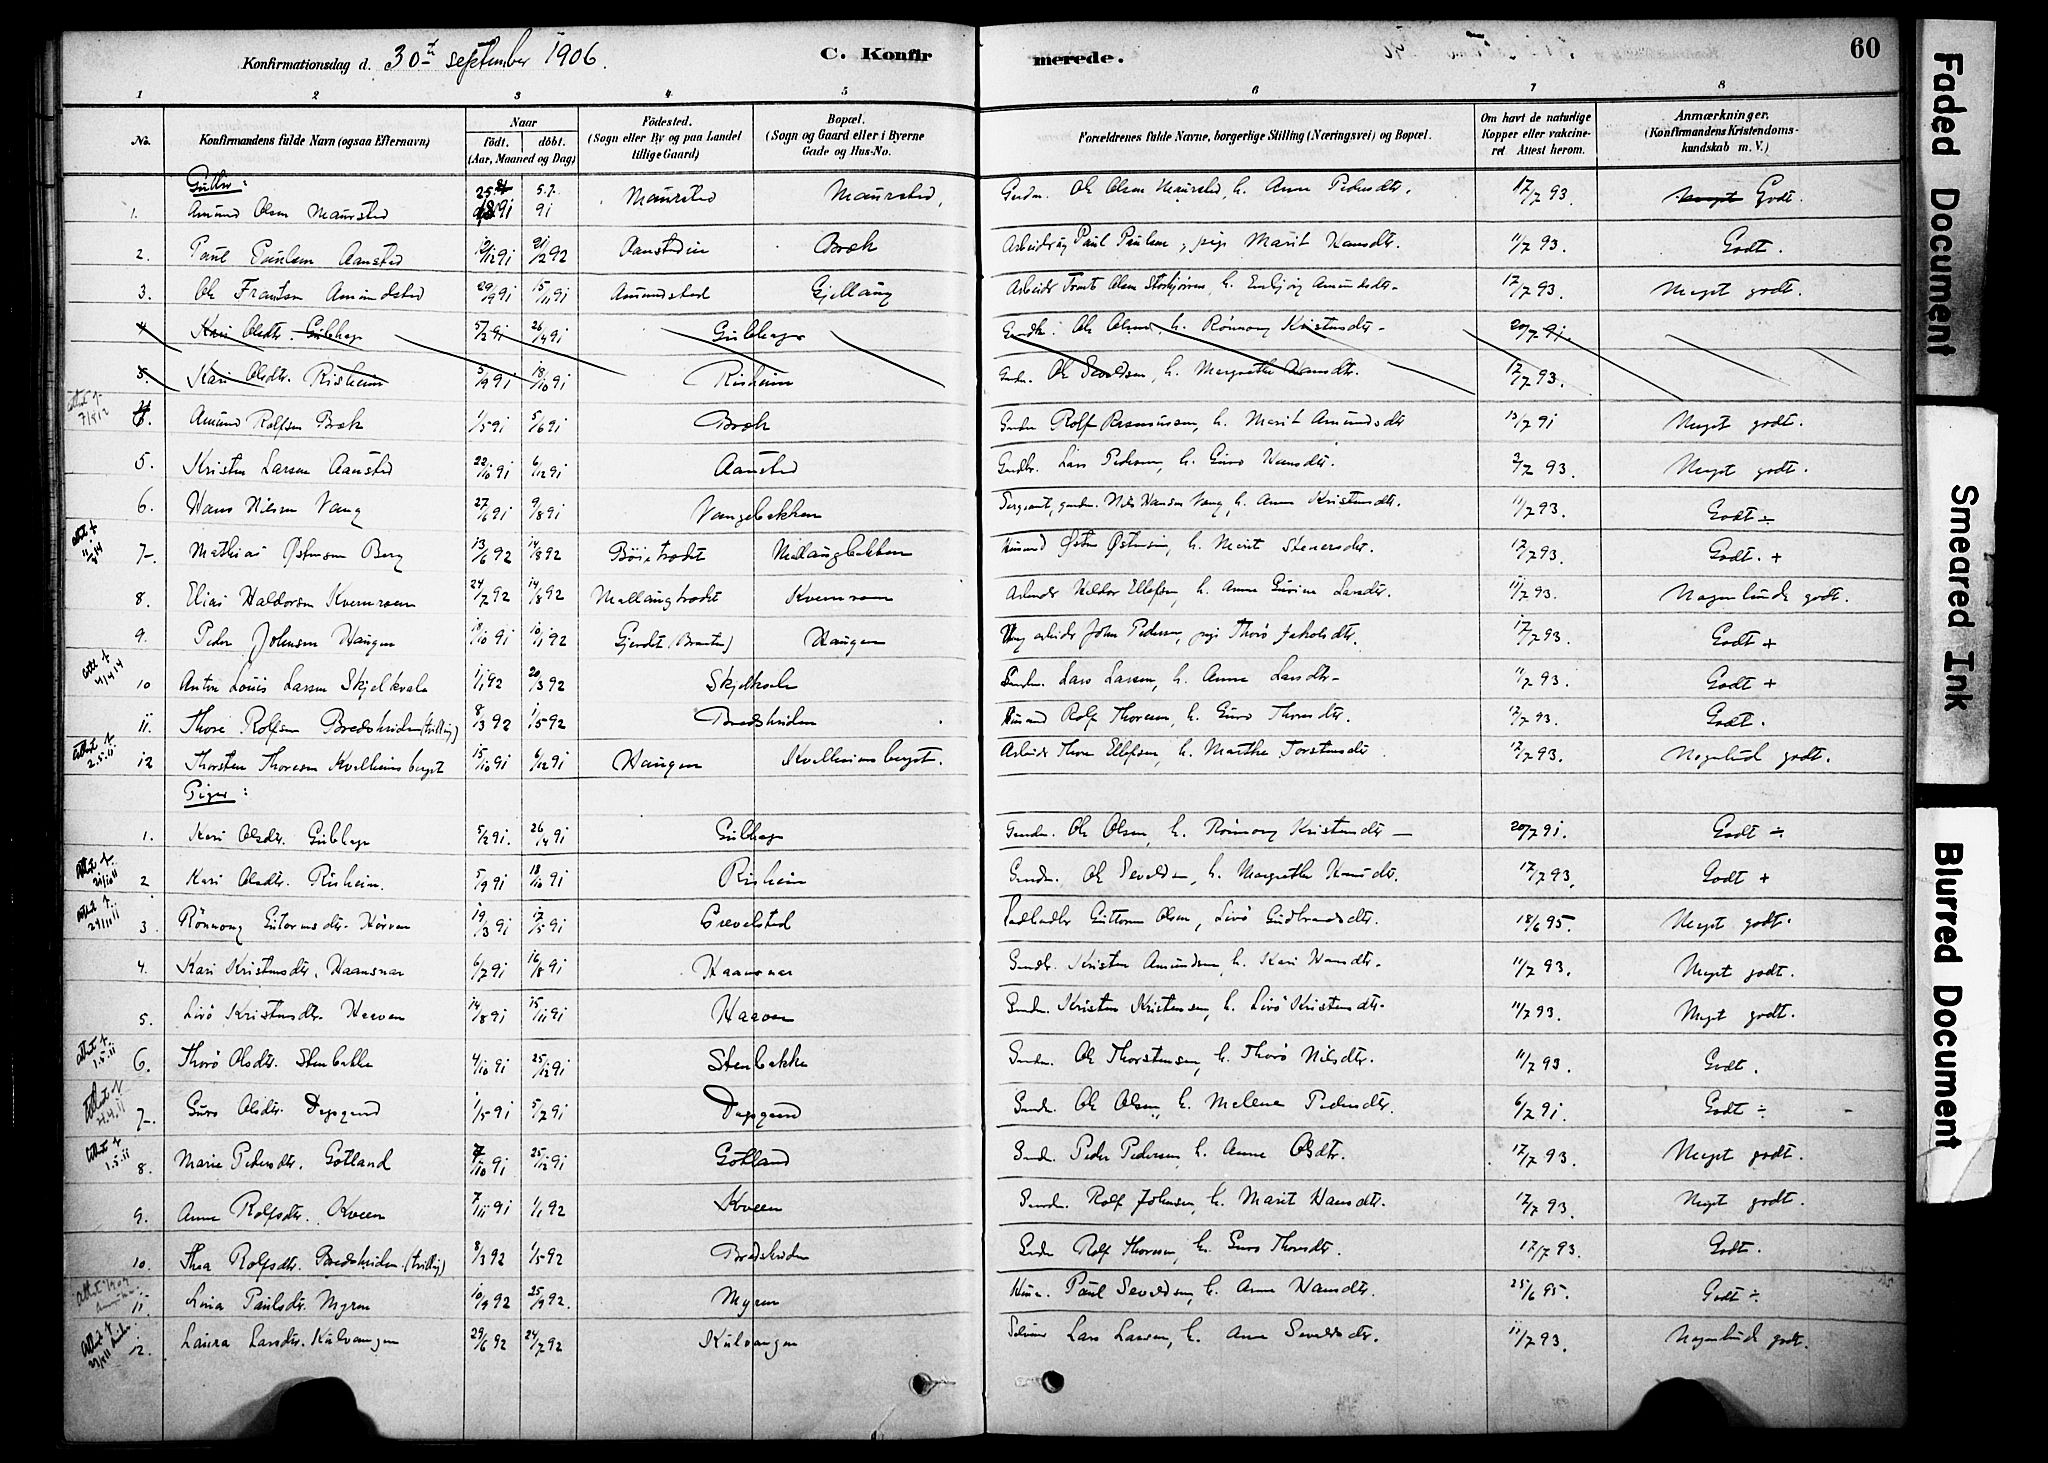 Konfirmationsdag d. 30te september 1906. C. Konfirmerede. 60
1 2 3 4 5 6 7 8
No. Konfirmandens fulde Navn (ogsaa Efternavn) Naar født. døbt. (Aar, Maaned og Dag) Fødested. (Sogn eller By og paa Landet tillige Gaard) Bopæl. (Sogn og Gaard eller i Byerne Gade og Hus-No. Forældrenes fulde Navne, borgerlige Stilling (Næringsvei) og Bopæl. Om havt de naturlige Kopper eller vakcineret Attest herom. Anmærkninger. (Konfirmandens Kristendomskundskab m. V.)
Gutter:
1. Amund Olsen Maurstad 91 5.7. 91 Maurstad Maurstad, Gmdm. Ole Olsen Maurstad, h. Anne Pedersdtr. 17/7 93. Meget Godt.
2. Paul Paulsen Aansted 10/12 91 21/2 92 Aansteden Bræk Paul Paulsen, pige Marit Hansdtr. 11/7 93. Godt.
3. Ole Frantsen Amundsted 29/9 91 15/11 91 Amundsted Gjellaug Arbeider Frants Olsen h. Amundsdtr. 17/7 93. Meget godt.
4 Kari Olsdtr. Gulbhage 5/2 91 26/4 91 Gulbhage Ole Olsen, h. Rønnaug Kristensdtr. 20/7 91.
5. Kari Olsdtr. Risheim 5/9 91 18/10 91 Risheim Ole Sevaldsen, h. Margrethe Hansdtr. 17/7 93.
Attest 7/5 12 4. Amund Rolfsen Bræk 1/5 91 5/6 91 Bræk Rolf Rasmussen, h. Marit Amundsdtr 13/7 91 Meget godt.
5. Kristen Larsen Aansted 22/10 91 6/12 91 Aansted Lars Pedersen, h. Guro Hansdtr. 2/7 93. Meget godt.
6. Hans Nilsen Vang 27/6 91 9/8 91 Vangsbakken Sergeant, gmdm. Nils Hansen Vang, h. Anne Kristensdtr. 11/7 93. Godt ÷
7. Mathias Østensen Berg 13/6 92 14/8 92 Mellaugbakken Husmd Østen Østensen, h. Marit Steinersdtr. 17/7 93. Godt. +
8. Elias Haldorsen Kvernroen 24/7 92 14/8 92 Mellaugtrædet Kvernroen Arbeider Haldor Ellefsen, h. Anne Gurine Larsdtr. 11/7 93. Nogenlunde godt.
9. Peder Johnsen Haugen 18/10 91 10/1 92 Gjerdet Haugen Ung arbeider John Pedersen, pige Thorø Jakobsdtr. 17/7 93. Godt +
Attest 4/4 14 10 Anton Louis Larsen Skjelkvale 1/1 92 20/3 92 Skjelkvale Lars Larsen, h. Anne Larsdtr. 11/7 93. Godt +
11. Thore Rolfsen Bredeskriden (tvilling) 8/3 92 1/5 92 Bredskriden Husmd Rolf Thoresen, h. Guro Thorsdtr. 17/7 93. Godt.
Attest 2.5.11 12 Thorsten Thoresen Kvelheimsberget 15/10 91 6/12 91 Haugen Kvelheimsberget. Arbeider Thore Ellefsen, h. Marthe Torstensdtr. 17/7 93. Nogenlund godt.
Piger:
1. Kari Olsdtr. Gulbhage 5/2 91. 26/4 91 Gulbhage Ole Olsen, h. Rønnaug Kristensdtr 20/7 91. Godt ÷
Attest 21/10 11 2 Kari Olsdtr. Risheim. 5/9 91 18/10 91 Risheim Ole Sevaldsen, h. Margrethe Hansdtr. 17/7 93. Godt +
3. Rønnaug Gutormsdtr. Hørven 19/3 91 17/5 91 Prevelsted Guttorm Olsen, Livø Gudbrandsdtr. 18/6 95. Meget godt.
4. Kari Kristensdtr. Haansnar 6/7 91 16/8 91 Haansnar Kristen Amundsen, h. Kari Hansdtr. 11/7 93. Meget godt.
5. Livø Kristensdtr. Haaven 14/8 91 15/11 91 Haaven Kristen Kristensen, h. Livø Kristensdtr. 11/7 93. Meget godt.
Attest 1.5.11 6. Thorø Olsdtr. Stenbakke 4/10 91 25/12 91 Stenbakke Ole Thorstensen, h. Thorø Nilsdtr. 11/7 93. Godt.
7. Guro Olsdtr. Dagsgard 1/5 91 5/7 91 Dagsgard Ole Olsen, h. Malene Pedersdtr. 6/7 91. Godt ÷
Attest 1.5.11 8. Marie Pedersdtr. Gotland 7/10 91 25/12 91 Gotland Peder Pedersen, h. Anne Olsdtr. 17/7 93. Meget godt.
9. Anne Rolfsdtr. Kveen 7/11 91 1/1 92 Kveen Rolf Johnsen, h. Marit Hansdtr. 17/7 93. Meget godt.
10. Thea Rolfsdtr. Bredskriden (tvilling) 8/3 92 1/5 92 Bredskriden Rolf Thoresen, h. Guro Thorsdtr. 17/7 93. Godt.
11 Lina Paulsdtr. Myren 10/9 92 25/9 92. Myren Paul Sevaldsen, h. Anne Hansdtr. 25/6 95. Godt ÷
12. Laura Larsdtr. Kulvangen 29/6 92 24/7 92 Kulvangen Lars Larsen, h. Anne Sevaldsdtr. 11/7 93. Nogenlunde godt.
Faded Document
Smeared Ink
Blurred Document